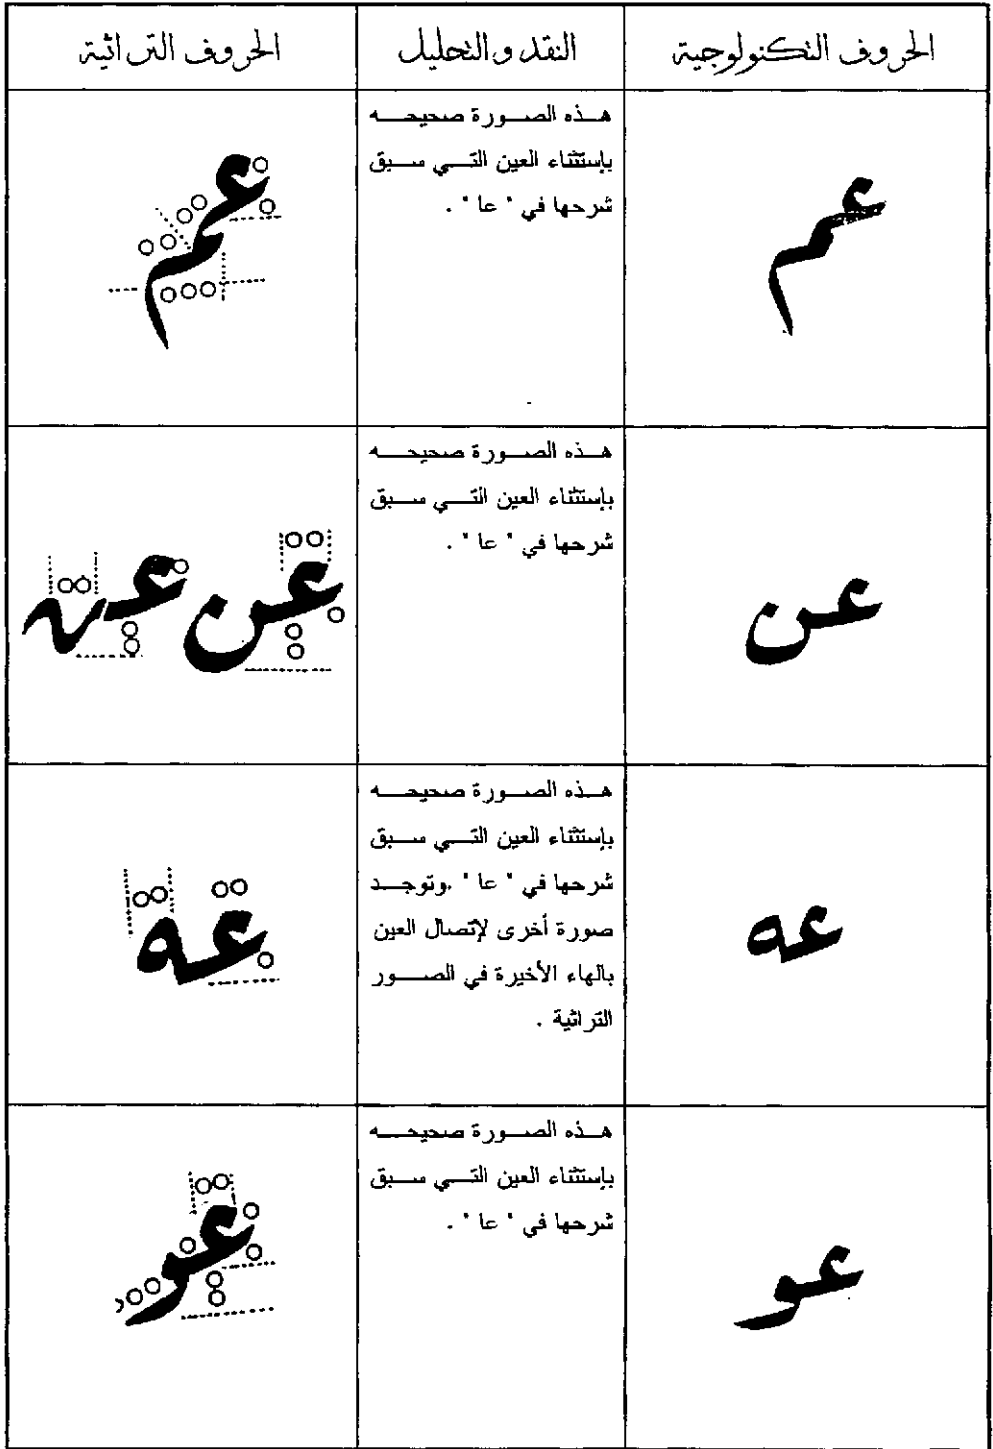 الحروف التكنولوجية
النقد والتحليل
الحروف التراثية
عم
هذه الصورة صحيحه
بإستثناء العين التي سبق
شرحها في " عا " .
عم
عن
هذه الصورة صحيحه
بإستثناء العين التي سبق
شرحها في " عا " .
عن عن
عه
هذه الصورة صحيحه
بإستثناء العين التي سبق
شرحها في " عا " .وتوجد
صورة أخرى لإتصال العين
بالهاء الأخيرة في الصور
التراثية .
عه
عو
هذه الصورة صحيحه
بإستثناء العين التي سبق
شرحها في " عا " .
عو